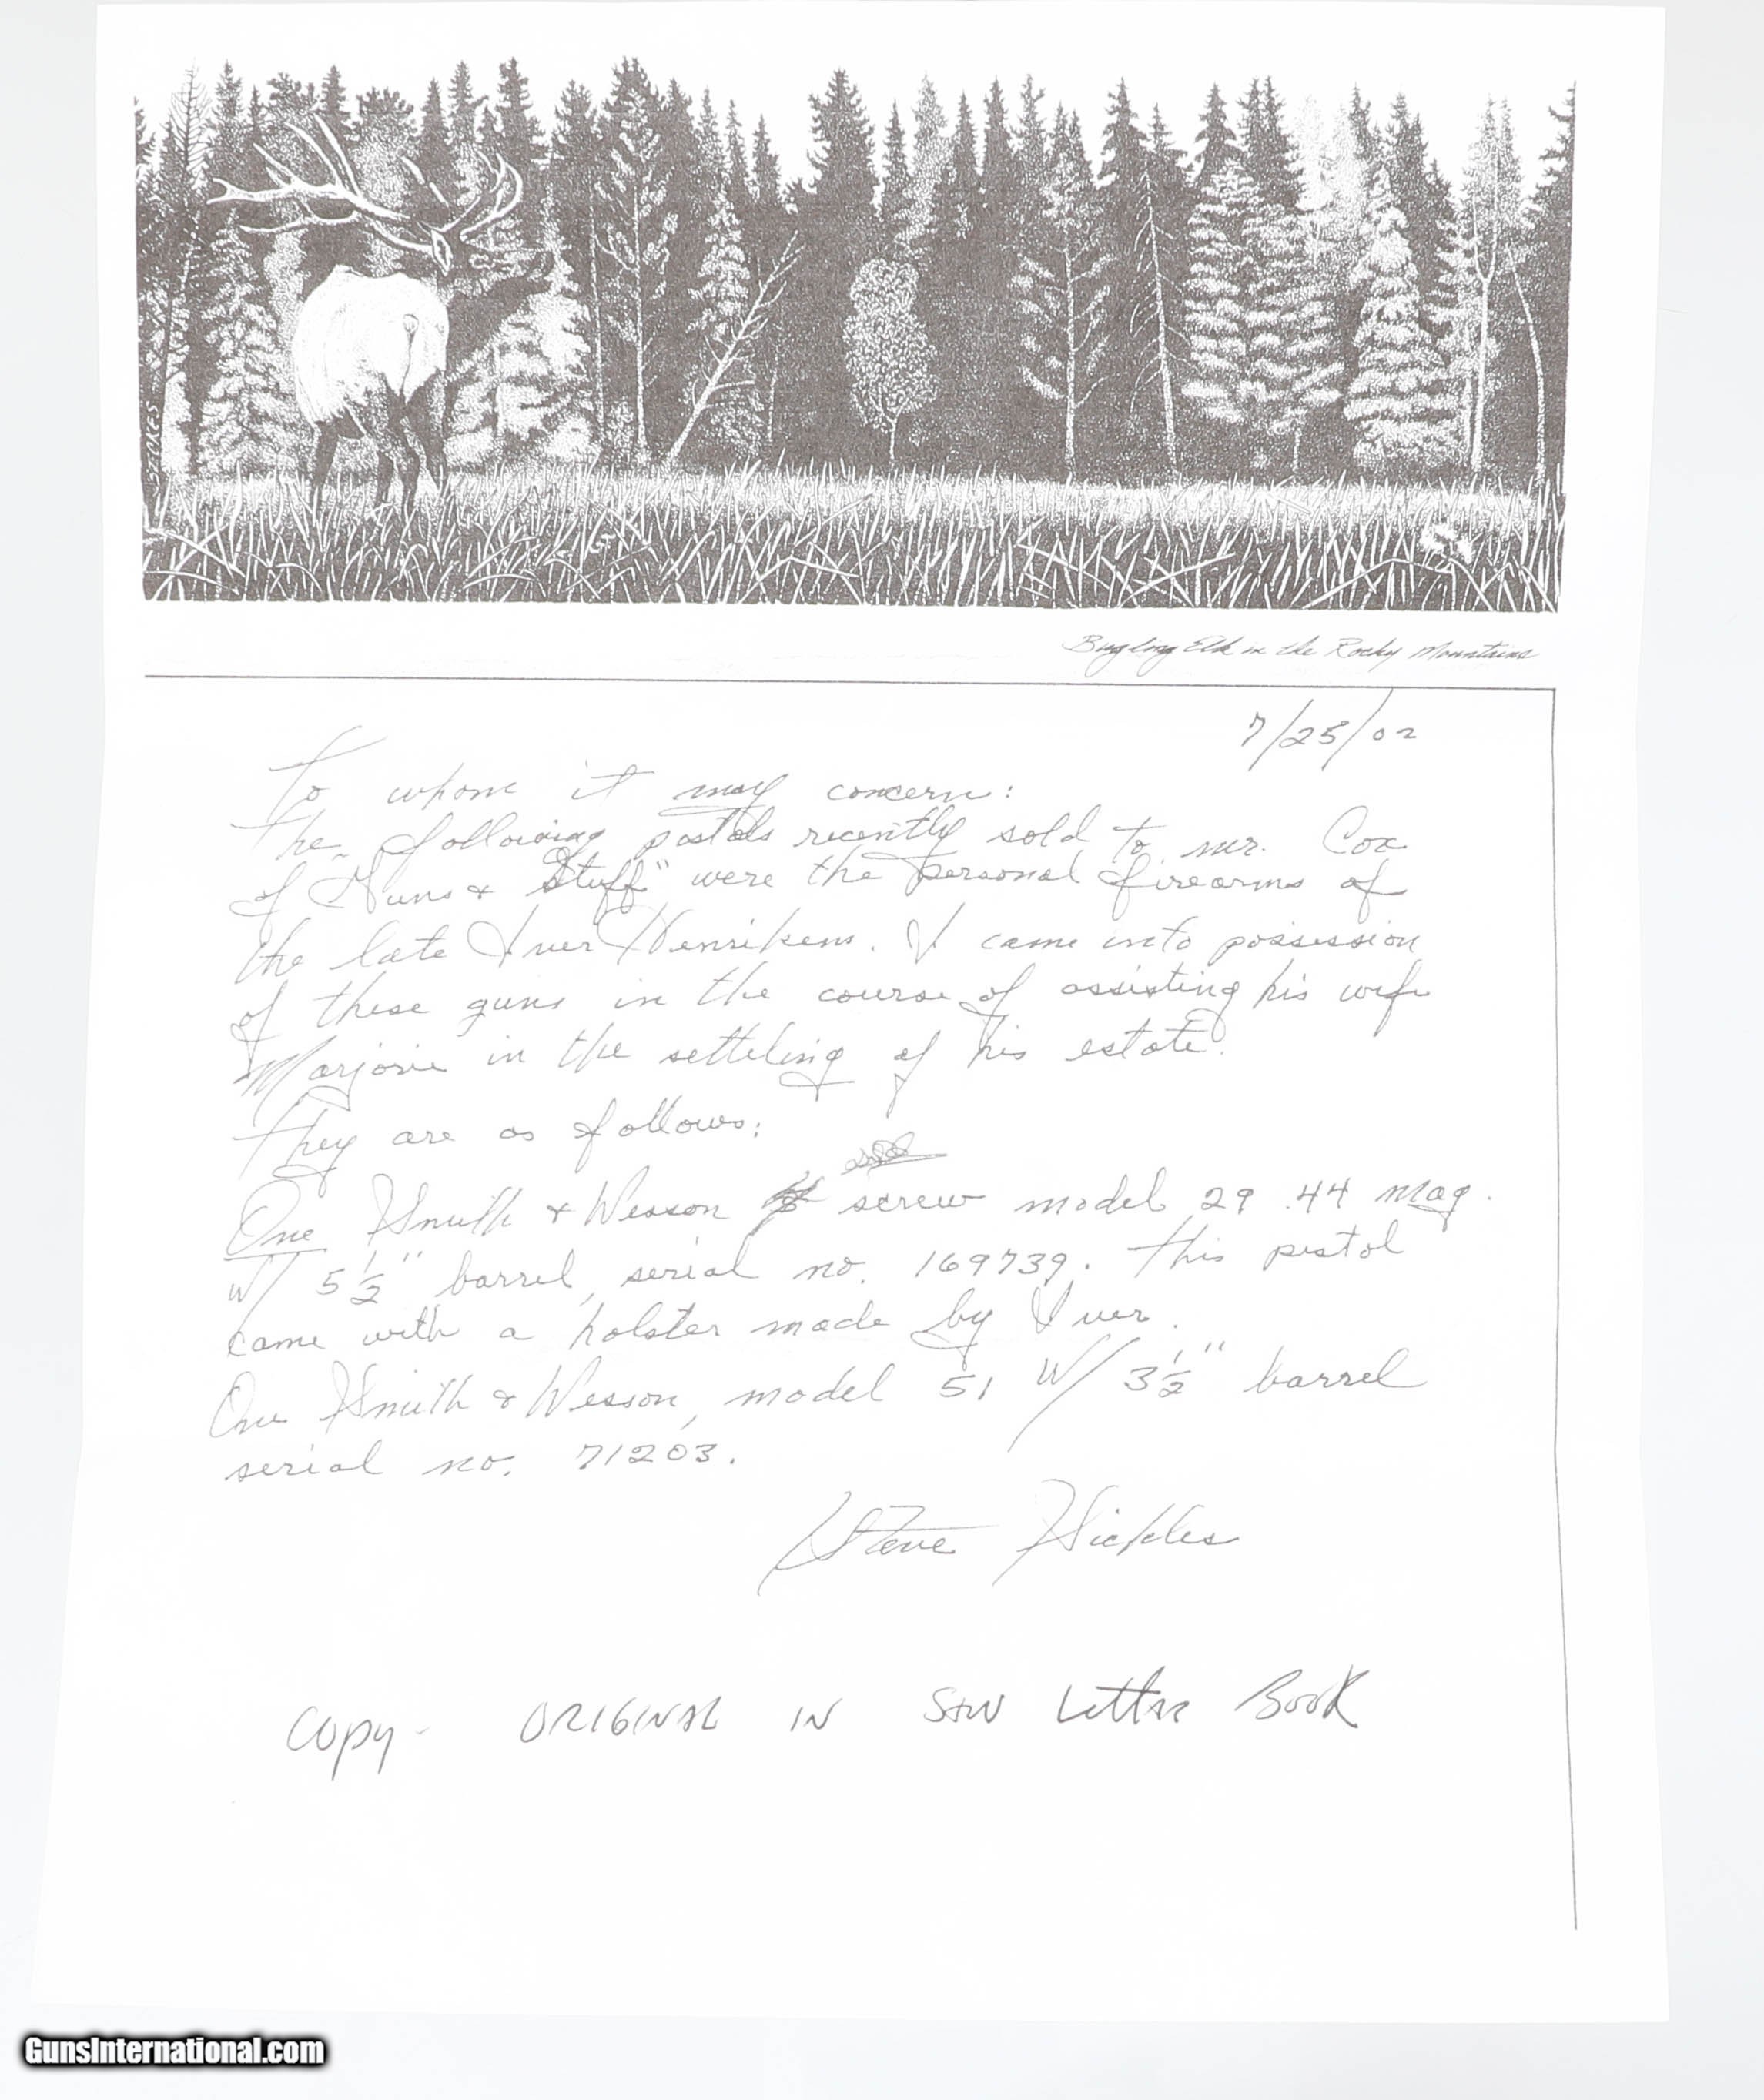 STAKES
Bugling Elk in the Rocky Mountains
7/25/02
To whom it may concern:
The following pistols recently sold to mr. Cox
of "Guns & Stuff" were the personal firearms of
the late Iver Henriksen. I came into possession
of these guns in the course of assisting his wife
Marjorie in the setteling of his estate.
They are as follows:
One Smith & Wesson screw model 29 .44 mag.
W/ 5 1/2" barrel, serial no. 169739. This pistol
came with a holster made by Iver.
One Smith & Wesson, model 51 W/ 3 1/2" barrel
serial no. 71203.
Steve Hickles
Copy - ORIGINAL IN S&W Letter Book
GunsInternational.com